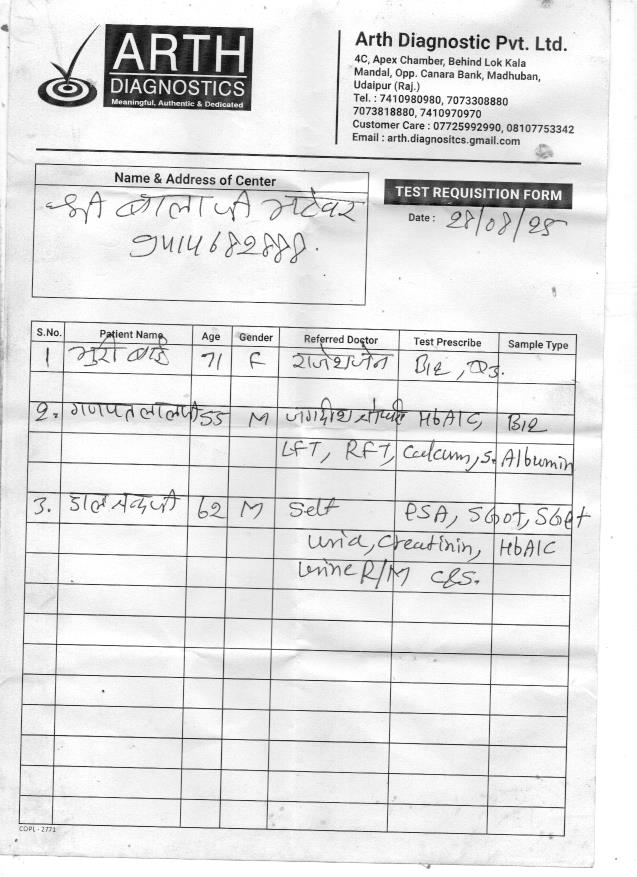 ARTH
DIAGNOSTICS
Meaningful, Authentic & Dedicated
Arth Diagnostic Pvt. Ltd.
4C, Apex Chamber, Behind Lok Kala
Mandal, Opp. Canara Bank, Madhuban,
Udaipur (Raj.)
Tel. : 7410980980, 7073308880
7073818880, 7410970970
Customer Care : 07725992990, 08107753342
Email : arth.diagnositcs.gmail.com
Name & Address of Center
TEST REQUISITION FORM
श्री बालाजी भटेवर
9414682888.
Date : 28/08/25
S.No. Patient Name Age Gender Referred Doctor Test Prescribe Sample Type
1 बाई 71 F राजेश जैन B12, D3.
2. गणपतलालजी 55 M जगदीश HbA1C, B12
LFT, RFT, Calcum, S. Albumin
3. 62 M Self PSA, SGOT, SGPT
Urid, Creatinin, HbA1C
Urine R/M C&S.
COPL - 2771